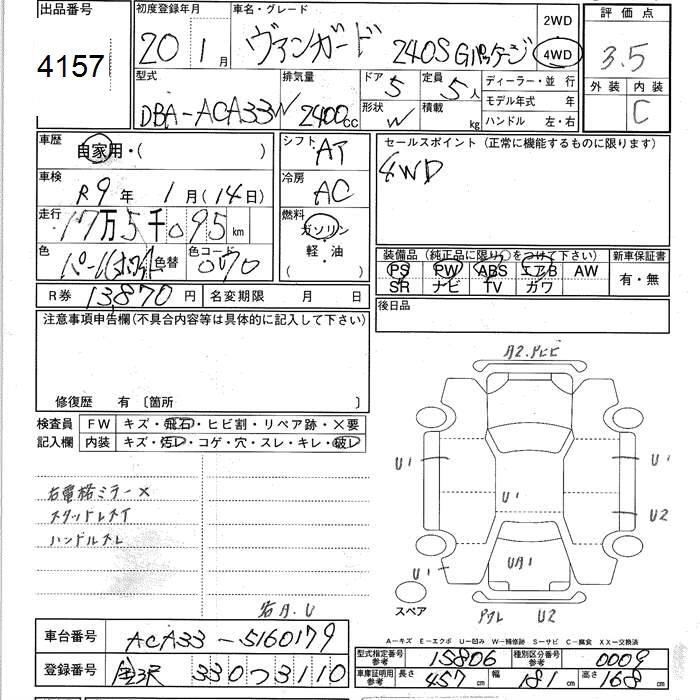 出品番号
4157
初度登録年月
20年 1月
車名・グレード
ヴァンガード 240S Gパッケージ
2WD
4WD
評価点
3.5
外装 内装
C
型式
DBA-ACA33W
排気量
2400cc
ドア
5
形状
W
定員
5人
積載
kg
ディーラー・並行
モデル年式 年
ハンドル 左・右
車歴
自家用・( )
シフト
AT
セールスポイント(正常に機能するものに限ります)
4WD
車検
R9年 1月(14日)
冷房
AC
走行
17万5千095km
燃料
ガソリン
軽・油
色
パールホワイト
色替
色コード
070
装備品(純正品に限り○をつけて下さい)
PS PW ABS エアB AW
SR ナビ TV カワ
新車保証書
有・無
R券 13,870円
名変期限 月 日
後日品
注意事項申告欄(不具合内容等は具体的に記入して下さい)
修復歴 有〔箇所 〕
検査員
記入欄
FW キズ・飛石・ヒビ割・リペア跡・×要
内装 キズ・汚レ・コゲ・穴・スレ・キレ・破レ
右電格ミラー×
スタッドレスタイヤ
ハンドルスレ
A2.トビ
U1
U1
U1
U2
U1
UA1
U1
スペア
U2
A-キズ E-エクボ U-凹み W-補修跡 S-サビ C-腐食 XX-交換済
車台番号
ACA33-5160179
登録番号
金沢 330 つ 3110
型式指定番号
参考
15806
種別区分番号
参考
0009
車庫証明用
参考
長さ 457cm 幅 181cm 高さ 168cm